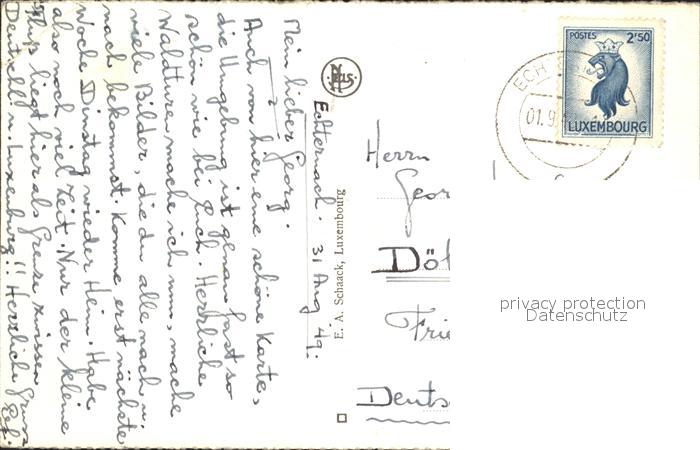 Echternach. 31 Aug 49.
Mein lieber Georg.
Auch von hier eine schöne Karte,
die Umgebung ist genau fast so
schön wie bei Euch. Herrliche
Waldturen mache ich nun, mache
viele Bilder, die du alle nach u.
nach bekommst. Komme erst nächste
Woche Dienstag wieder Heim. Habe
also noch viel Zeit. Nur der kleine
Fluss liegt hier als Grenze zwissen
Deutschl. u. Luxeburg!! Herzliche Grüsse
E. A. Schaack, Luxembourg
POSTES 2F50
LUXEMBOURG
ECH
01.9
Herrn
Geor
Döl
Frie
Deuts
privacy protection
Datenschutz